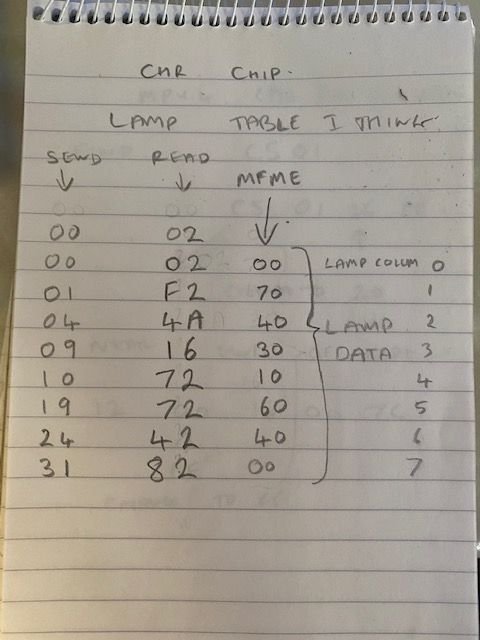 CHR CHIP.
LAMP TABLE I THINK.
SEND READ MFME
00 02
00 02 00 LAMP COLUM 0
01 F2 70 1
04 4A 40 LAMP 2
09 16 30 DATA 3
10 72 10 4
19 72 60 5
24 42 40 6
31 82 00 7